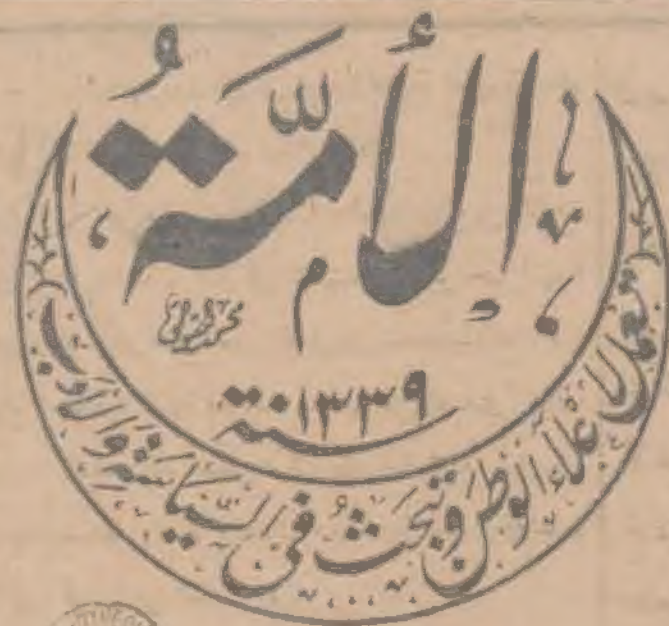 الأمَّةُ
سنة ١٣٣٩
تعمل لاعلاء الوطن وتبحث في السياسة والأدب